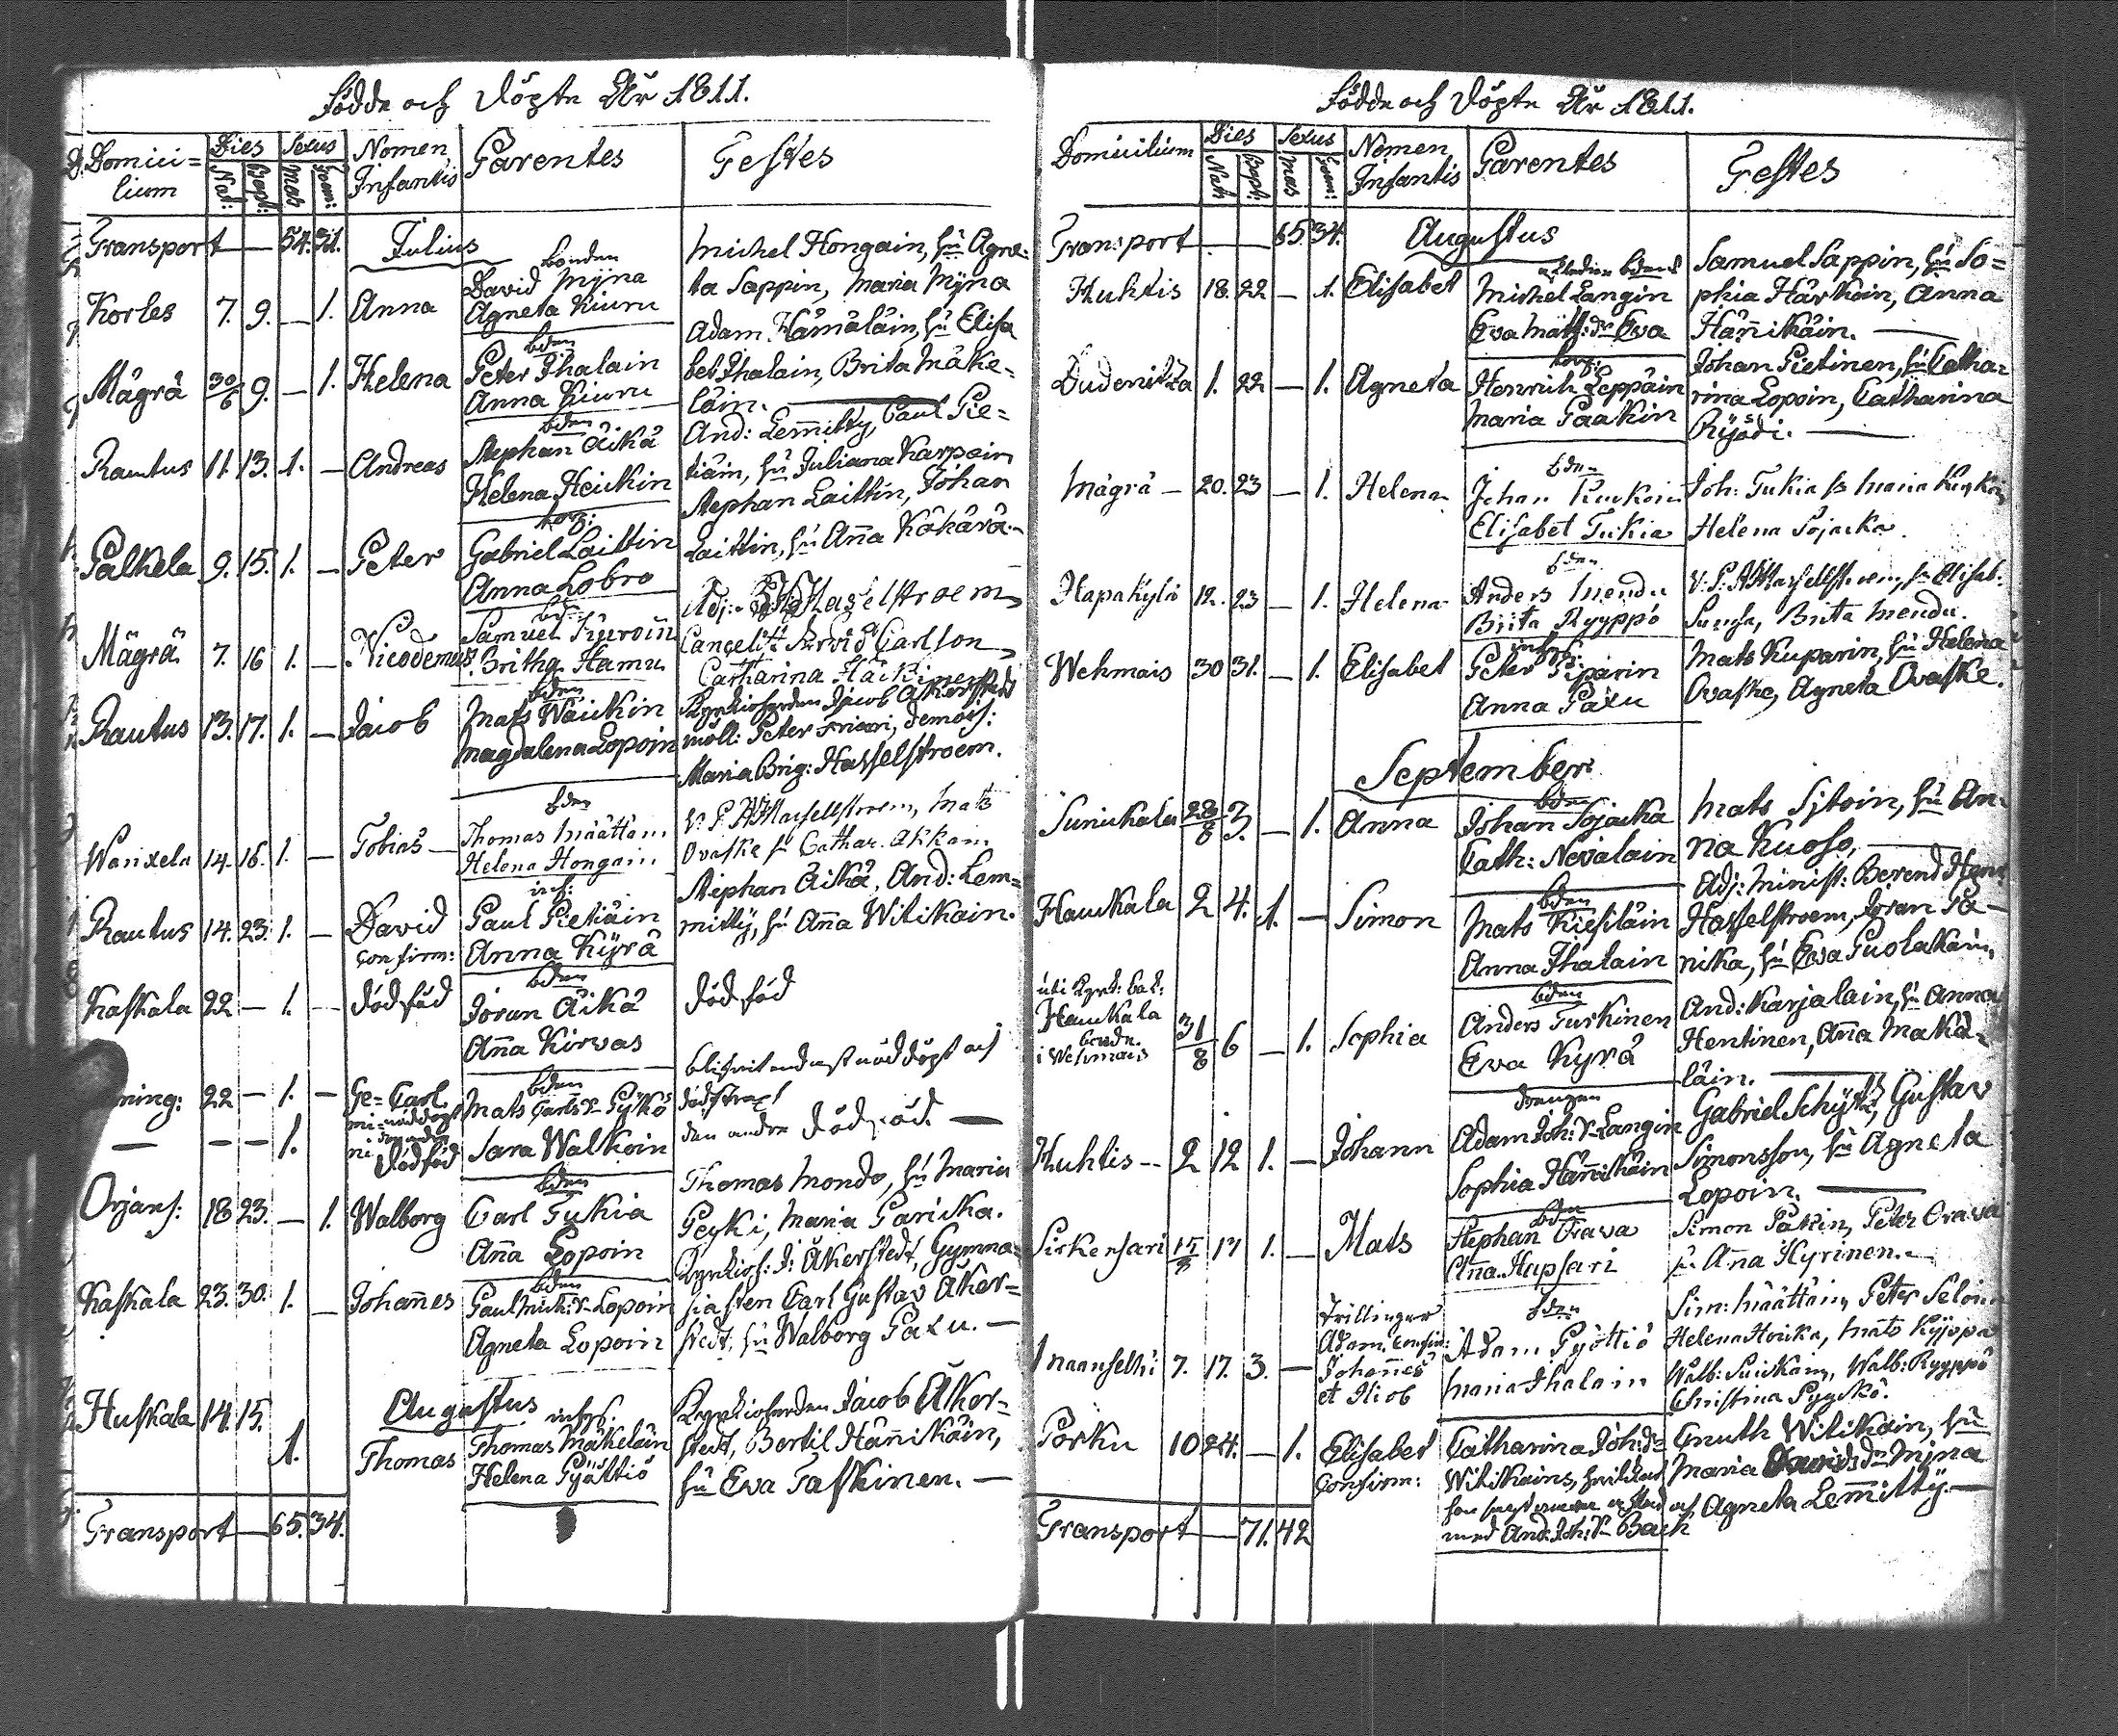 Födde och Döpte År 1811.
Domici=
lium
Dies
Nat:
Bapt:
Sexus
Mas
Foem:
Nomen
Infantis
Parentes
Testes
Transport — 54. 31.
Julius
Korles 7. 9. — 1. Anna
bonden
David Mÿna
Agneta Kiuru
Michel Hongain, hu Agne-
ta Sappin, Maria Mÿna
Mägrä 30/6 9. — 1. Helena
bden
Peter Ihalain
Anna Kiuru
Adam Hämäläin, hu Elisa
bet Ihalain, Brita Mäke-
läin.
Rautus 11. 13. 1. — Andreas
bden
Stephan Äikä
Helena Heickin
And: Lemmitty, Paul Pie-
tiäin, hu Juliana Karpain
Palkela 9. 15. 1. — Peter
torp:
Gabriel Laittin
Anna Lobro
Stephan Laittin, Johan
Laittin, hu Anna Kähärä.
Mägrä 7. 16 1. — Nicodemus
Samuel
Britha Hamu
Adj: Hasselstroem
Carlson
Catharina Häkinen
Rautus 13. 17. 1. — Jacob
bden
Mats Wäickin
Magdalena Lopoin
Kyrckioherden Jacob Åkerstedt
Peter demois:
Maria Brig: Hasselstroem.
Wanxela 14. 16. 1. — Tobias
bden
Thomas Määttäin
Helena Hongain
V. P. Hasselstroem, Mats
Ovaske hu Cathar. Akkain
Rautus 14. 23. 1. — David
confirm:
inh:
Paul Pietiäin
Anna Kÿrä
Stephan Äikä, And: Lem-
mitty, hu Anna Witikain.
Kaskala 22 — 1. — dödföd
bden
Jöran Äikä
Anna Kirvas
dödföd
ning: 22 — 1. — Ge- Carl
— — — 1.
dödföd
bden
Mats Carls Pÿkö
Sara Walkoin
den andra dödföd. —
Orjans: 18 23. — 1. Walborg
bden
Carl Tukia
Anna Lopoin
Thomas Mondo, hu Maria
Peyki, Maria Paricka.
Kaskala 23. 30. 1. — Johannes
bden
Paul Mich: Lopoin
Agneta Lopoin
Kyrckioh: J: Åkerstedt, Gymna-
siasten Carl Gustav Åker-
stedt, hu Walborg Paxu. —
Augustus
Huskala 14. 15. 1. Thomas
inhys.
Thomas Mäkeläin
Helena Pyöttiö
Kyrckioherden Jacob Åker-
stedt, Bertil Hännikäin,
hu Eva Taskinen. —
Transport — 65. 34.
Födde och Döpte År 1811.
Domicilium
Dies
Nat:
Bapt:
Sexus
Mas
Foem:
Nomen
Infantis
Parentes
Testes
Transport — 65. 34.
Augustus
Huhtis 18. 22 — 1. Elisabet
Michel Langin
Eva Matts: dr Eva
Samuel Sappin, hu So=
phia Härkoin, Anna
Hännikäin. —
Dudenitza 1. 22 — 1. Agneta
torp:
Henrich Leppäin
Maria Paakin
Johan Pietinen, hu Catha-
rina Lopoin, Catharina
Mägrä — 20. 23 — 1. Helena
bden
Johan
Elisabet Tukia
Joh: Tukia h Maria
Helena Sojacka
Hapakylä 12. 23 — 1. Helena
bden
Anders Mendu
Brita Ryyppö
V: P: Hasselstroem, h Elisab:
Brita Mendu.
Wehmais 30 31. — 1. Elisabet
inhys:
Peter Piparin
Anna Paxu
Mats Kuparin, hu Helena
Ovaske, Agneta Ovaske.
September
28/8 3. — 1. Anna
bden
Johan Sojacka
Cath: Nevalain
Mats Sjtoin, hu An-
na Kuoso,
Hauckala 2 4. 1. — Simon
bden
Mats Kiesiläin
Anna Ihalain
Adj: Minist: Berend Henr
Hasselstroem, Jöran Pa-
nika, hu Eva Puolakain,
Hauckala
i Wehmais
31/8 6 — 1. Sophia
bden
Anders Turkinen
Eva Kyrä
And: Karjalain, hu Anna
Hentinen, Anna Mäkä-
läin. —
Huhtis — 2 12 1. — Johann
drengen
Adam Joh: Langin
Sophia Hännikäin
Gabriel Schytz, Gustav
Simonsson, hu Agneta
Lopoin. —
Sirkensari 15/8 17 1. — Mats
bden
Stephan Orava
Anna Hupsari
Simon Päkin, Peter Orava
hu Anna Hyrinen. —
Maanselkä 7. 17. 3. —
Trillingar
Adam, confir:
Johannes
et Hiob
bden
Adam Pyöttiö
Maria Ihalain
Sim: Määttäin, Peter Seloin
Helena Horika, Mats Ryyppö
Walb: Suickain, Walb: Ryyppö
Christina Pyyckö.
Porku 10 24. — 1. Elisabet
Confirm:
Catharina Joh: dr
Witikains,
med And: Joh: Back
Gnuth Witikain, hu
Maria Davids dr Mina
och Agneta Lemmittÿ. —
Transport — 71. 42